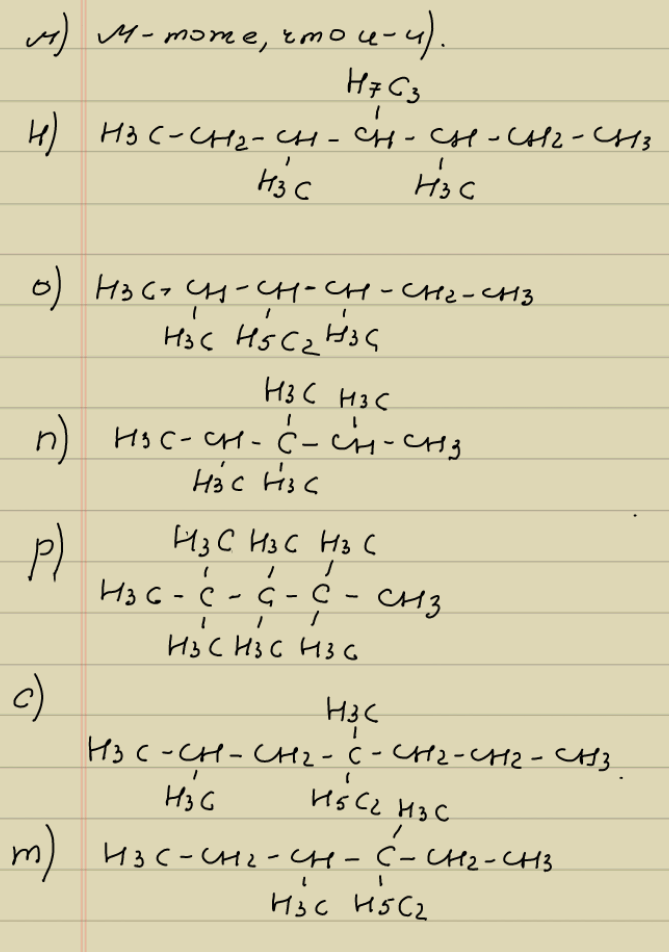 м) М-тоже, что и-ч).
H7C3
н) H3C-CH2-CH-CH-CH-CH2-CH3
H3C H3C
о) H3C-CH-CH-CH-CH2-CH3
H3C H5C2 H3C
H3C H3C
п) H3C-CH-C-CH-CH3
H3C H3C
р) H3C H3C H3C
H3C-C-C-C-CH3
H3C H3C H3C
с)
H3C
H3C-CH-CH2-C-CH2-CH2-CH3
H3C H5C2
H3C
т) H3C-CH2-CH-C-CH2-CH3
H3C H5C2